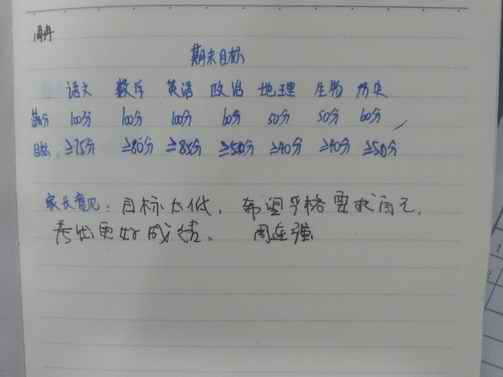 周丹
期末目标
语文 数学 英语 政治 地理 生物 历史
满分 100分 100分 100分 60分 50分 50分 60分
目标: ≥75分 ≥80分 ≥85分 ≥50分 ≥40分 ≥40分 ≥50分
家长意见: 目标太低, 希望严格要求自己,
考出更好成绩。 周连强